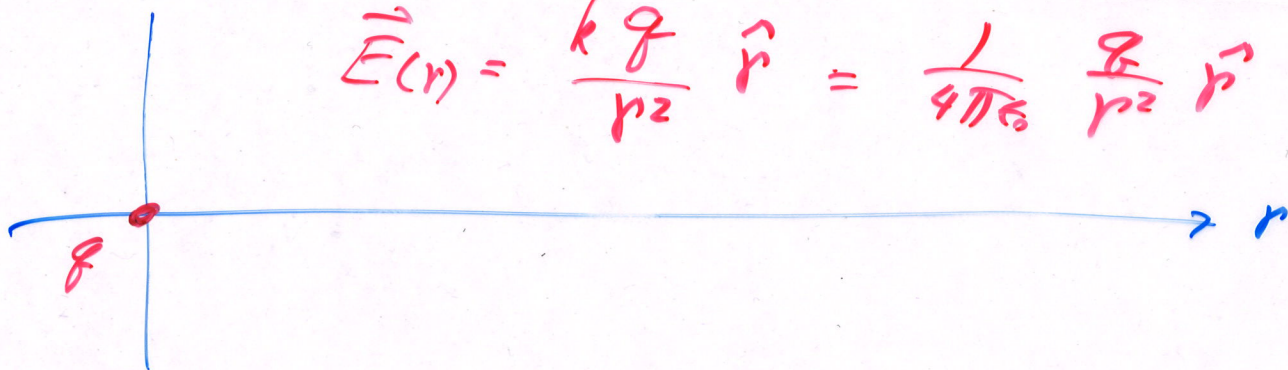 E⃗(r) = kq/r² r̂ = 1/4πε₀ q/r² r̂
r
q